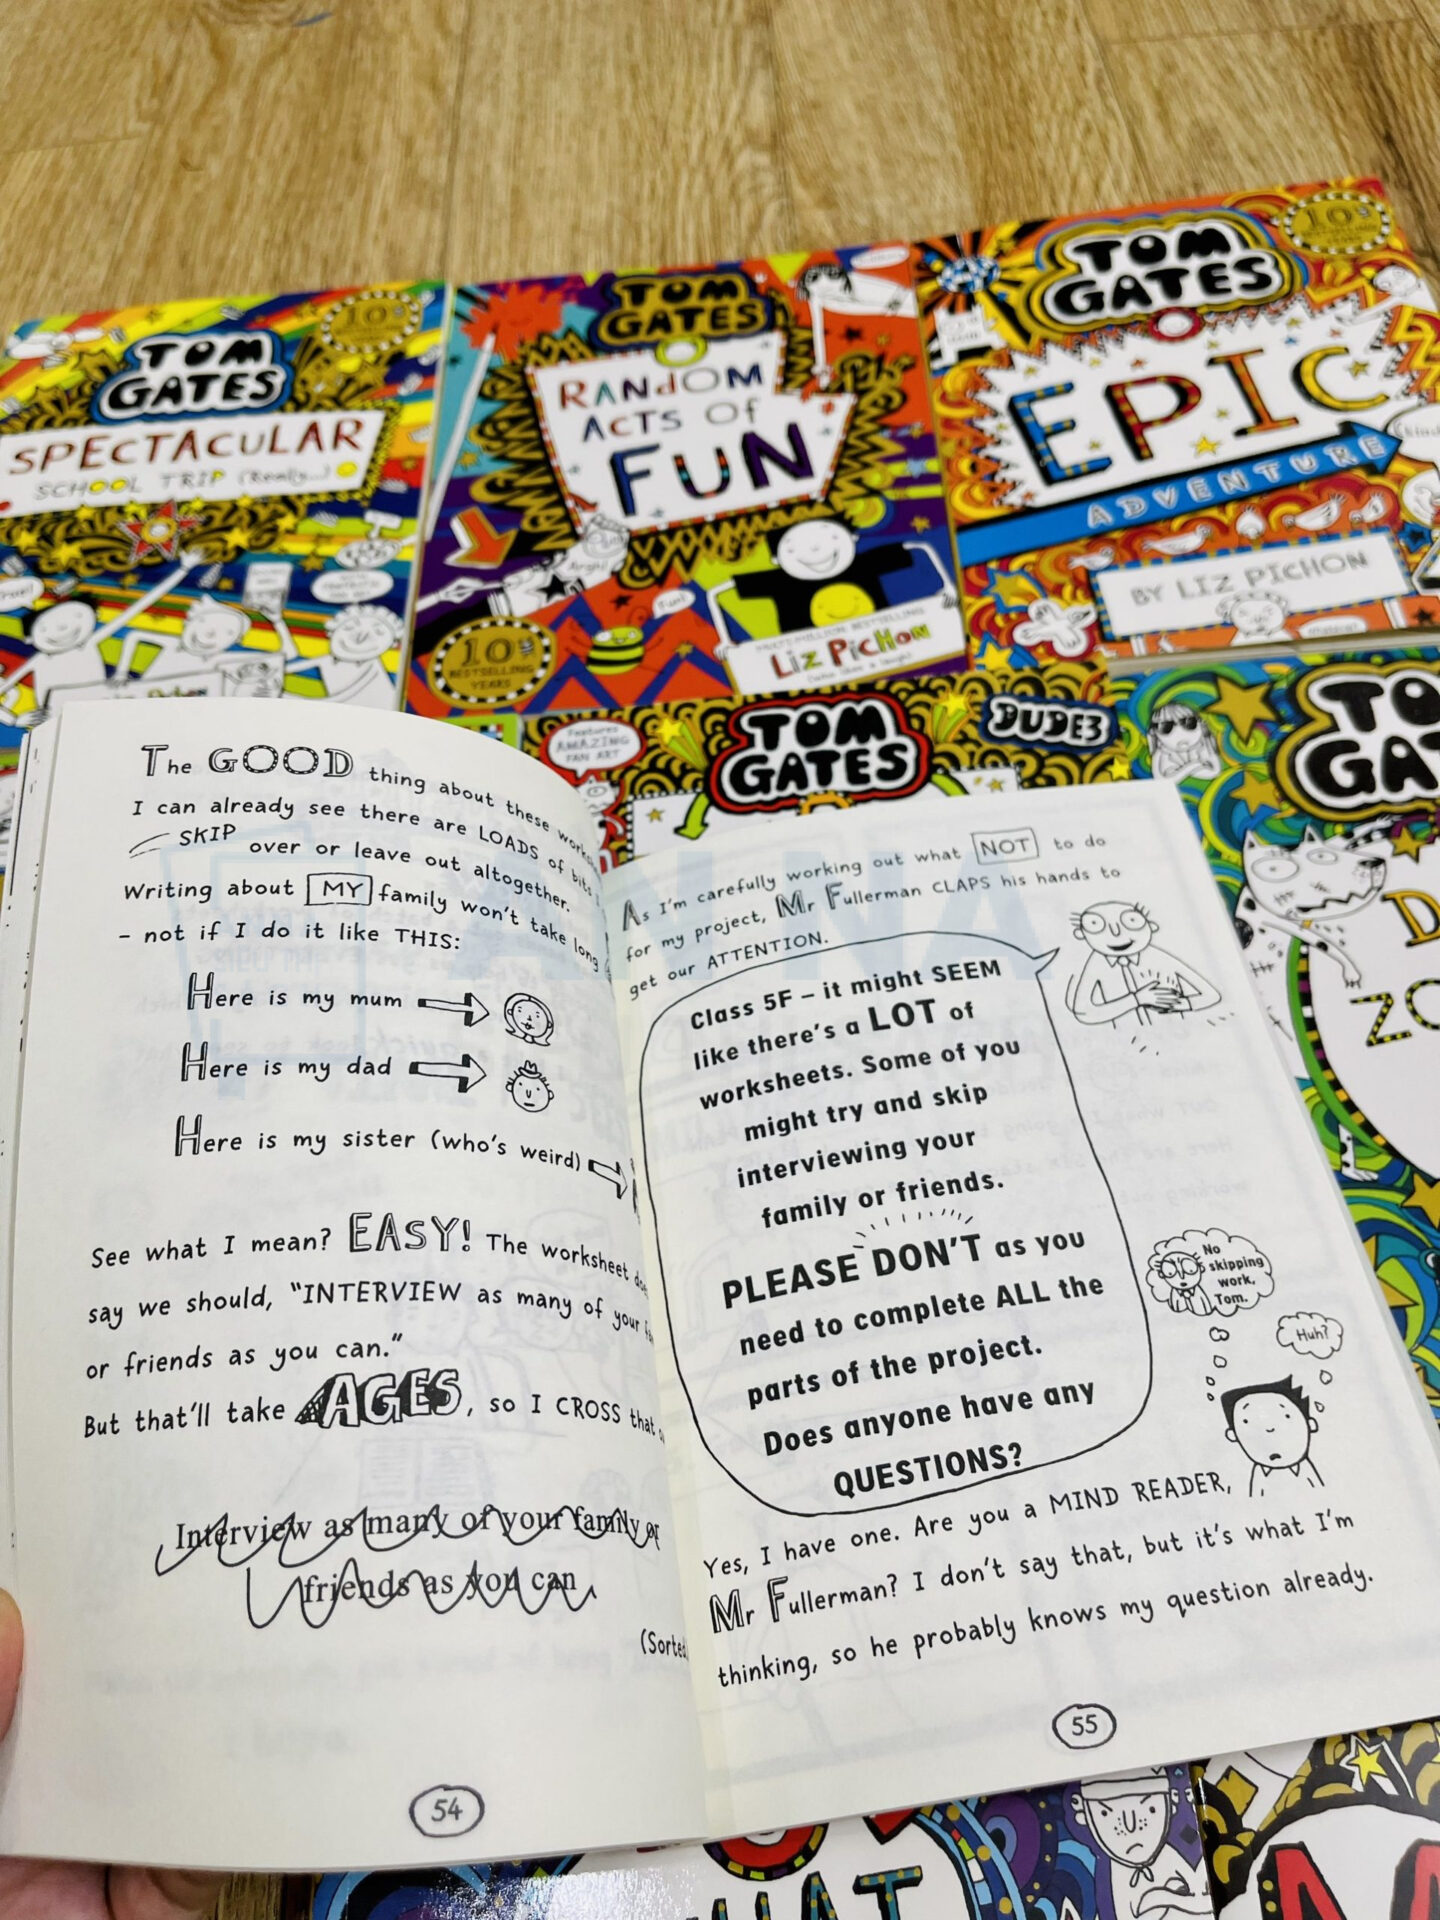 TOM
GATES
SPECTACULAR
SCHOOL TRIP (Really...)
10
TOM
GATES
RANdOM
ACTS of
FUN
Fun!
10
BESTSELLING
YEARS
MULTI-MILLION BESTSELLING
Liz PicHon
TOM
GATES
10
EPIC
ADVENTURE
BY LIZ PICHON
Features
AMAZING
FAN ART
TOM
GATES
DUDE3
The GOOD thing about these
I can already see there are LOADS of bits I
SKIP over or leave out altogether.
Writing about MY family won't take long
- not if I do it like THIS:
Here is my mum
Here is my dad
Here is my sister (who's weird)
See what I mean? EASY! The worksheet
say we should, "INTERVIEW as many of your
or friends as you can."
But that'll take AGES, so I CROSS that
Interview as many of your family or
friends as you can
(Sorted
54
As I'm carefully working out what NOT to do
for my project, Mr Fullerman CLAPS his hands to
get our ATTENTION.
Class 5F – it might SEEM
like there's a LOT of
worksheets. Some of you
might try and skip
interviewing your
family or friends.
PLEASE DON'T as you
need to complete ALL the
parts of the project.
Does anyone have any
QUESTIONS?
No
skipping
work,
Tom.
Huh?
Yes, I have one. Are you a MIND READER,
Mr Fullerman? I don't say that, but it's what I'm
thinking, so he probably knows my question already.
55